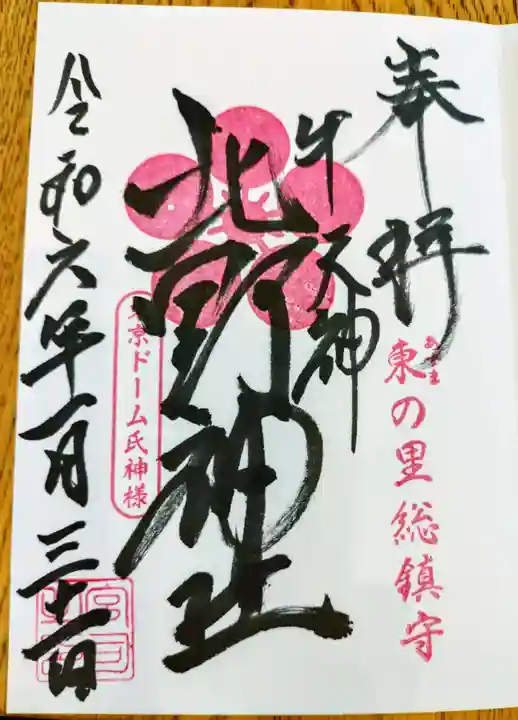 奉拝
あずま
東の里総鎮守
牛天神
北野神社
東京ドーム氏神様
令和六年一月三十一日